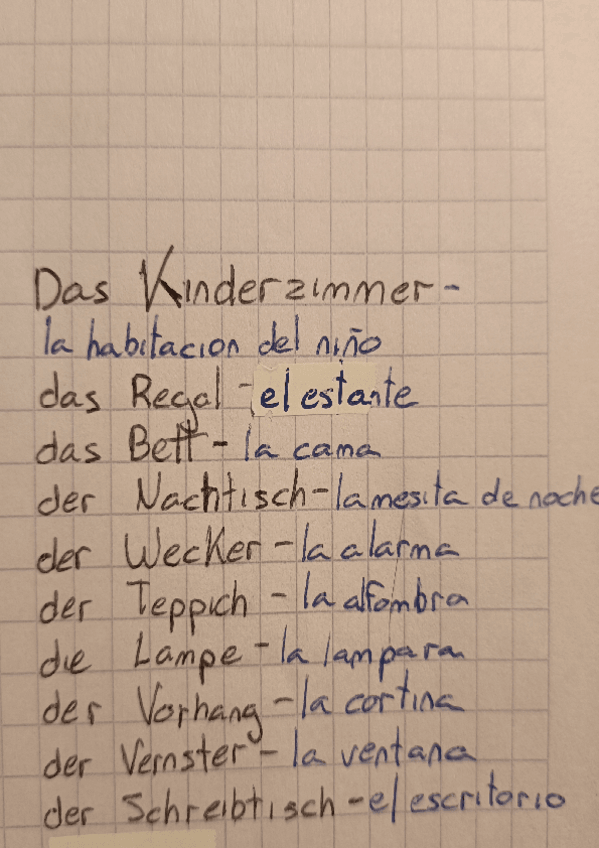 Das Kinderzimmer-
la habitacion del niño
das Regal - el estante
das Bett - la cama
der Nachtisch - la mesita de noche
der Wecker - la alarma
der Teppich - la alfombra
die Lampe - la lampara
der Vorhang - la cortina
der Vernster - la ventana
der Schreibtisch - el escritorio